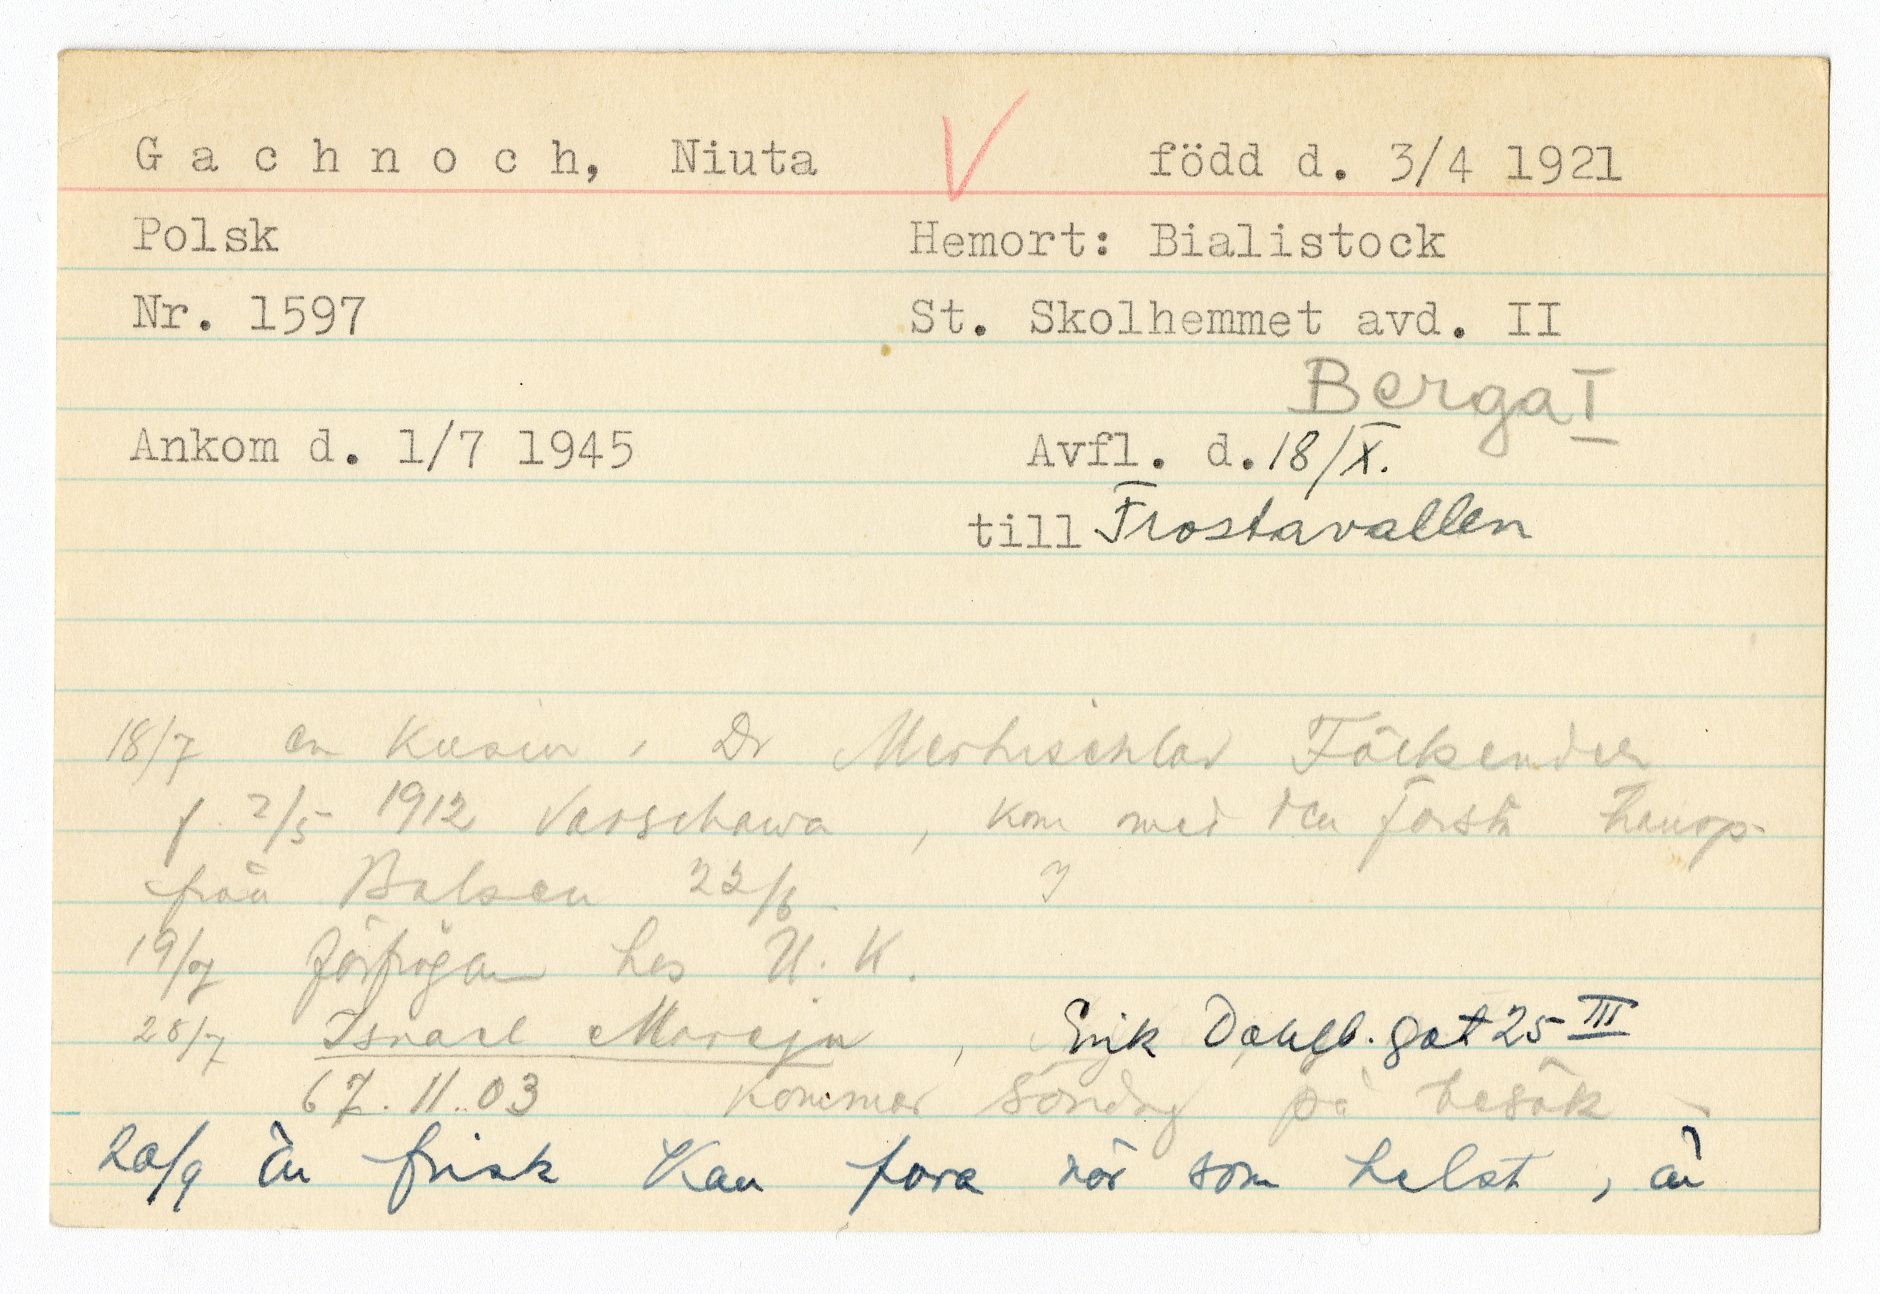 Gachnoch, Niuta född d. 3/4 1921
Polsk Hemort: Bialistock
Nr. 1597 St. Skolhemmet avd. II
Berga I
Ankom d. 1/7 1945 Avfl. d. 18/X.
till Frostavallen
18/7 en Kusin, Dr
f. 2/5 1912 Varschawa, kom med den första transp.
från Balsen 22/6.
19/7 förfrågan hos U.K.
28/7 Israel, Erik Dahlb. gat 25 III
67.11.03 kommer söndag på besök
20/9 är frisk Kan fara när som helst, är